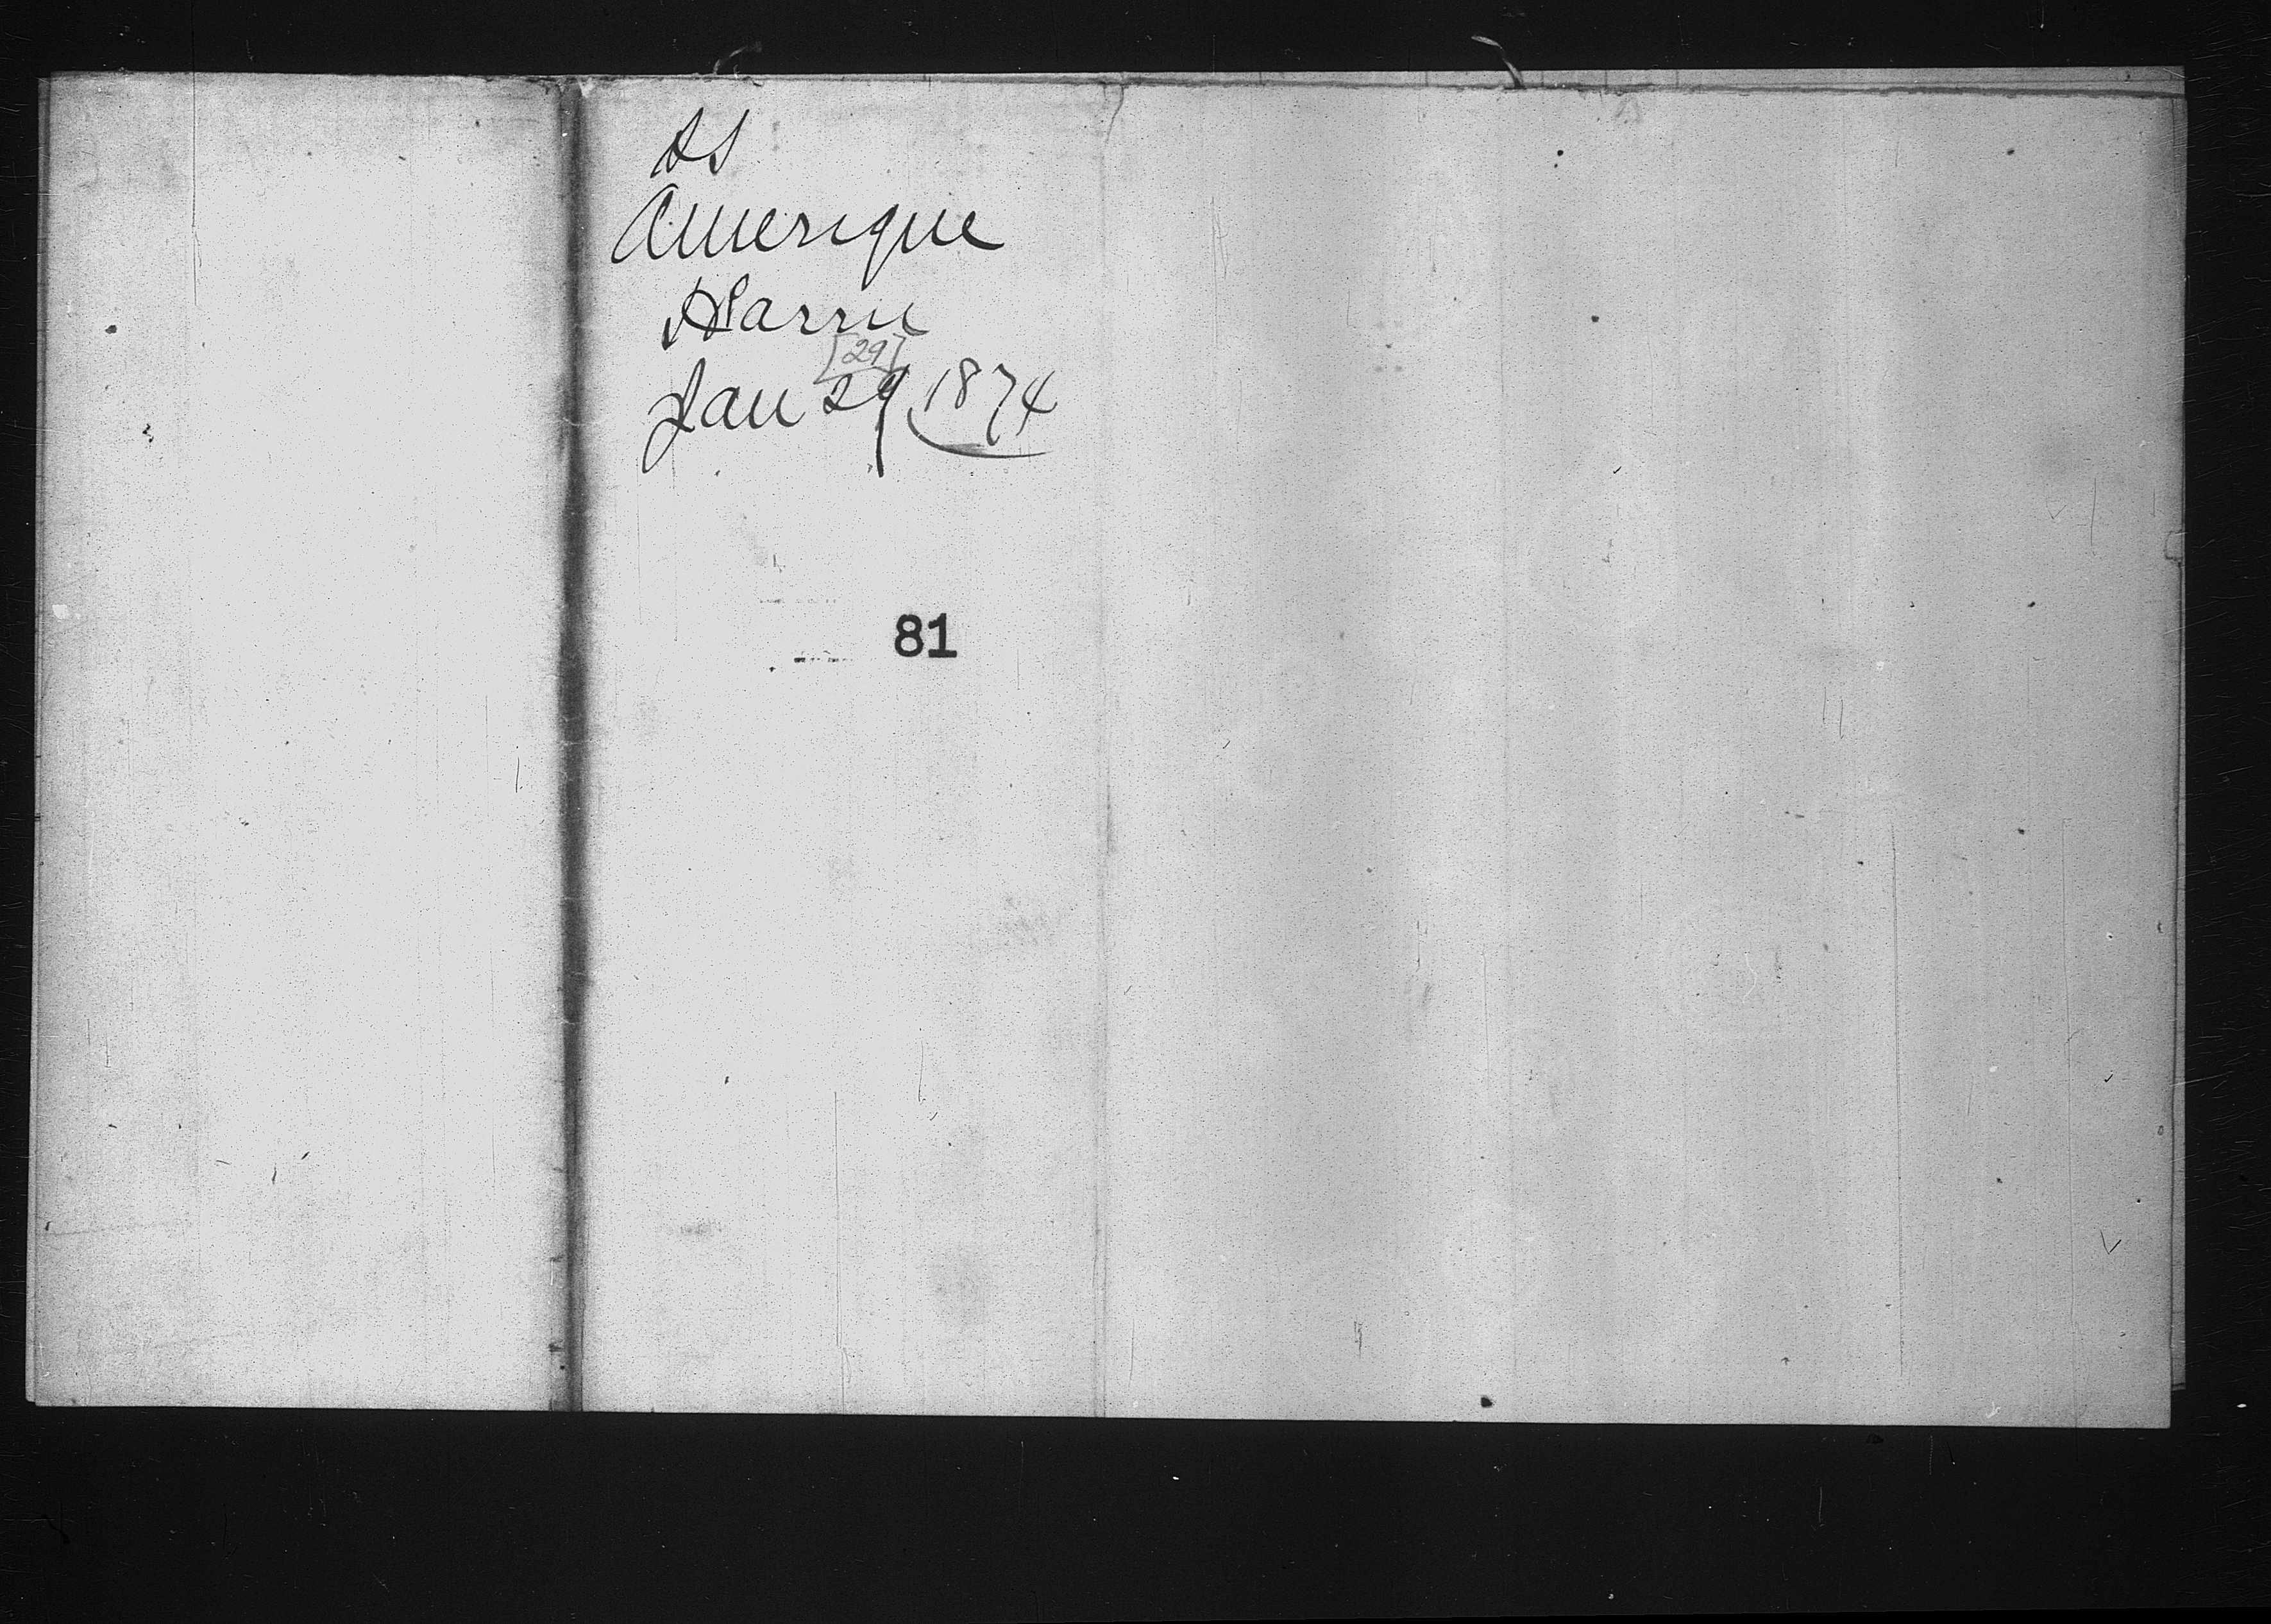 SS
Amerique
Havre
[29]
Jan 29 1874
81